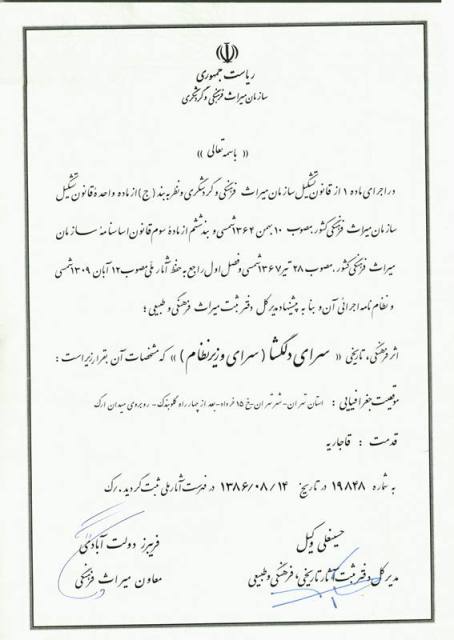 ریاست جمهوری
سازمان میراث فرهنگی و گردشگری
« باسمه تعالی »
در اجرای ماده ۱ از قانون تشکیل سازمان میراث فرهنگی و گردشگری و نظر به بند (ج) از ماده واحدهٔ قانون تشکیل
سازمان میراث فرهنگی کشور مصوب ۱۰ بهمن ۱۳۶۴ شمسی و بند ششم از مادهٔ سوم قانون اساسنامه سازمان
میراث فرهنگی کشور مصوب ۲۸ تیر ۱۳۶۷ شمسی و فصل اول راجع به حفظ آثار ملی مصوب ۱۲ آبان ۱۳۰۹ شمسی
و نظام نامه اجرائی آن و بنا به پیشنهاد مدیر کل دفتر ثبت میراث فرهنگی و طبیعی ؛
اثر فرهنگی، تاریخی « سرای دلگشا ( سرای وزیر نظام ) » که مشخصات آن بقرار زیر است :
موقعیت جغرافیایی : استان تهران - شهر تهران - خ ۱۵ خرداد - بعد از چهار راه گلوبندک - روبروی میدان ارک
قدمت : قاجاریه
به شماره ۱۹۸۴۸ در تاریخ ۱۳۸۶/۰۸/۱۴ در فهرست آثار ملی ثبت گردید./رک
حسینعلی وکیل
مدیر کل دفتر ثبت آثار تاریخی، فرهنگی و طبیعی
فریبرز دولت آبادی
معاون میراث فرهنگی